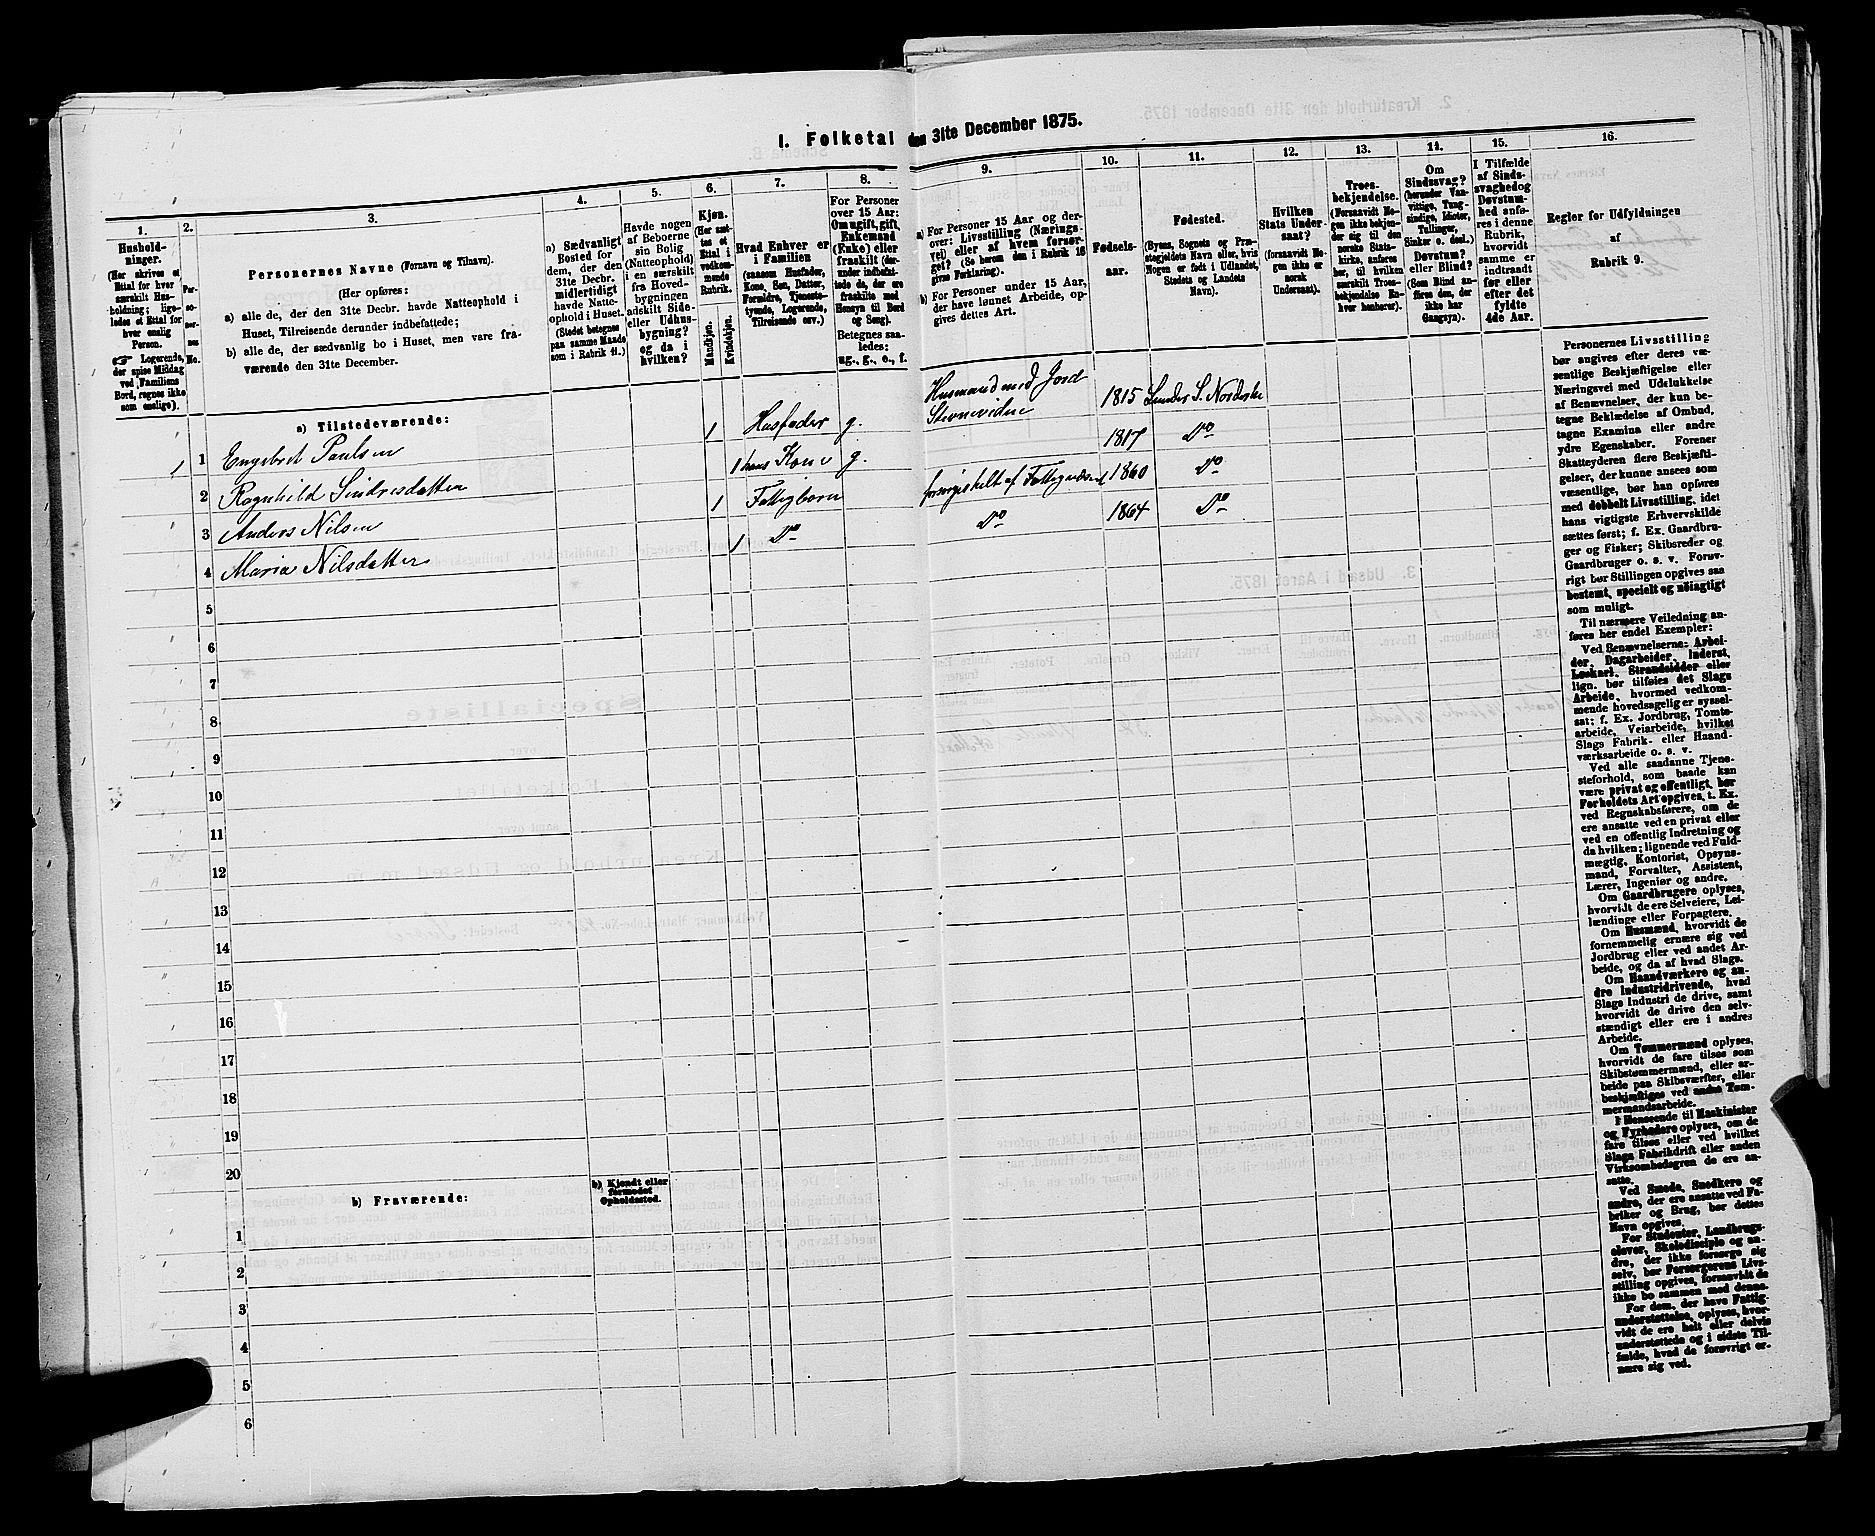 1. Folketal den 31te December 1875.
1.
Hushold-
ninger.
(Her skrives et
Ettal for hver
særskilt Hus-
holdning; lige-
ledes et Ettal for
hver enslig
Person.
☞ Logerende,
der spise Middag
ved Familiens
Bord, regnes ikke
som enslige).
2.
Per-
so-
ner-
nes
No.
3.
Personernes Navne (Fornavn og Tilnavn).
(Her opføres:
a) alle de, der den 31te Decbr. havde Natteophold i
Huset, Tilreisende derunder indbefattede;
b) alle de, der sædvanlig bo i Huset, men vare fra-
værende den 31te December.
4.
a) Sædvanligt
Bosted for
dem, der den
31te Decbr.
midlertidigt
havde Natte-
ophold i Huset.
(Stedet betegnes
paa samme Maade
som i Rubrik 11.)
5.
Havde nogen
af Beboerne
sin Bolig
(Natteophold)
i en særskilt
fra Hoved-
bygningen
adskilt Side-
eller Udhus-
bygning?
og da i
hvilken?
6.
Kjøn.
(Her sæt-
tes et
Ettal i
vedkom-
mende
Rubrik.
Mandkjøn.
Kvindekjøn.
7.
Hvad Enhver er
i Familien
(saasom Husfader,
Kone, Søn, Datter,
Forældre, Tjeneste-
tyende, Logerende,
Tilreisende osv.)
8.
For Personer
over 15 Aar:
Om ugift, gift,
Enkemand
(Enke) eller
fraskilt (der-
under indbefat-
tede de, der ere
fraskilte med
Hensyn til Bord
og Seng).
Betegnes saa-
ledes:
ug., g., e., f.
9.
a) For Personer 15 Aar og der-
over: Livsstilling (Nærings-
vei) eller af hvem forsør-
get? (Se herom den i Rubrik 16
givne Forklaring).
b) For Personer under 15 Aar,
der have lønnet Arbeide, op-
gives dettes Art.
10.
Fødsels-
aar.
11.
Fødested.
(Byens, Sognets og Præ-
stegjeldets Navn eller, hvis
Nogen er født i Udlandet,
Stedets og Landets
Navn).
12.
Hvilken
Stats Under-
saat?
(forsaavidt No-
gen ikke er
norsk
Undersaat).
13.
Troes-
bekjendelse.
(Forsaavidt No-
gen ikke bekjen-
der sig til den
norske Stats-
kirke, anføres
her, til hvilken
særskilt Troes-
bekjendelse En-
hver henhører).
14.
Om
Sindssvag?
(herunder Van-
vittige, Tung-
sindige, Idioter,
Tullinger,
Sinker o. desl.)
Døvstum?
eller Blind?
(Som Blind an-
føres den, der
ikke har
Gangsyn).
15.
I Tilfælde
af Sinds-
svaghed og
Døvstum-
hed anfø-
res i denne
Rubrik,
hvorvidt
samme er
indtraadt
før eller
efter det
fyldte
4de Aar.
16.
Regler for Udfyldningen
af
Rubrik 9.
a) Tilstedeværende:
1 1 Engebret Paulsen 1 Husfader g. Husmand med Jord 1815 Lunder S. Norderhe
2 Ragnhild Sindresdatter 1 hans Kone g. 1817 Do
3 Anders Nilsen 1 Fattigbarn forsørgishelt af Fattigvæsenet 1860 Do
4 Maria Nilsdatter 1 Do Do 1864 Do
5
6
7
8
9
10
11
12
13
14
15
16
17
18
19
20
b) Fraværende:
b) Kjendt eller
formodet
Opholdssted.
1
2
3
4
5
6
Personernes Livsstilling
bør angives efter deres væ-
sentlige Beskjæftigelse eller
Næringsvei med Udelukkelse
af Benævnelser, der kun be-
tegne Beklædelse af Ombud,
tagne Examina eller andre
ydre Egenskaber. Forener
Skatteyderen flere Beskjæfti-
gelser, der kunne ansees som
væsentlige, bør han opføres
med dobbelt Livsstilling, idet
hans vigtigste Erhvervskilde
sættes først; f. Ex. Gaardbru-
ger og Fisker; Skibsreder og
Gaardbruger o. s. v. Forøv-
rigt bør Stillingen opgives saa
bestemt, specielt og nøiagtigt
som muligt.
Til nærmere Veiledning an-
føres her endel Exempler:
Ved Benævnelserne: Arbei-
der, Dagarbeider, Inderst,
Løskarl, Strandsidder eller
lign. bør tilføies det Slags
Arbeide, hvormed vedkom-
mende hovedsagelig er syssel-
sat; f. Ex. Jordbrug, Tomte-
arbeide, Veiarbeide, hvilket
Slags Fabrik- eller Haand-
værksarbeide o. s. v.
Ved alle saadanne Tjene-
steforhold, som baade kan
være privat og offentligt, bør
Forholdets Art opgives, t. Ex.
ved Regnskabsførere, om de
ere ansatte ved en privat eller
ved en offentlig Indretning og
da hvilken; lignende ved Fuld-
mægtig, Kontorist, Opsyns-
mand, Forvalter, Assistent,
Lærer, Ingeniør og andre.
Om Gaardbrugere oplyses,
hvorvidt de ere Selveiere, Lei-
lændinge eller Forpagtere.
Om Husmænd, hvorvidt de
fornemmelig ernære sig ved
Jordbrug eller ved andet Ar-
beide, og da af hvad Slags.
Om Haandværkere og an-
dre Industridrivende, hvad
Slags Industri de drive, samt
hvorvidt de drive den selv-
stændigt eller ere i andres
Arbeide.
Om Tømmermænd oplyses,
hvorvidt de fare tilsøs som
Skibstømmermænd, eller ar-
beide paa Skibsværfter, eller
beskjæftiges ved andre Tøm-
mermandsarbeide.
I Henseende til Maskinister
og Fyrbødere oplyses, om de
fare tilsøs eller ved hvilket
Slags Fabrikdrift eller anden
Virksomhedsgren de ere an-
satte.
Ved Smede, Snedkere og
andre, der ere ansatte ved Fa-
briker og Brug, bør dettes
Navn opgives.
For Studenter, Landbrugs-
elever, Skoledisciple og an-
dre, der ikke forsørge sig
selv, bør Forsørgerens Livs-
stilling opgives, forsaavidt de
ikke bo sammen med denne.
For dem, der have Fattig-
understøttelse, oplyses, hvor-
vidt de ere helt eller delvis
understøttede og i sidste Til-
fælde, hvad de forøvrigt er-
nære sig ved.